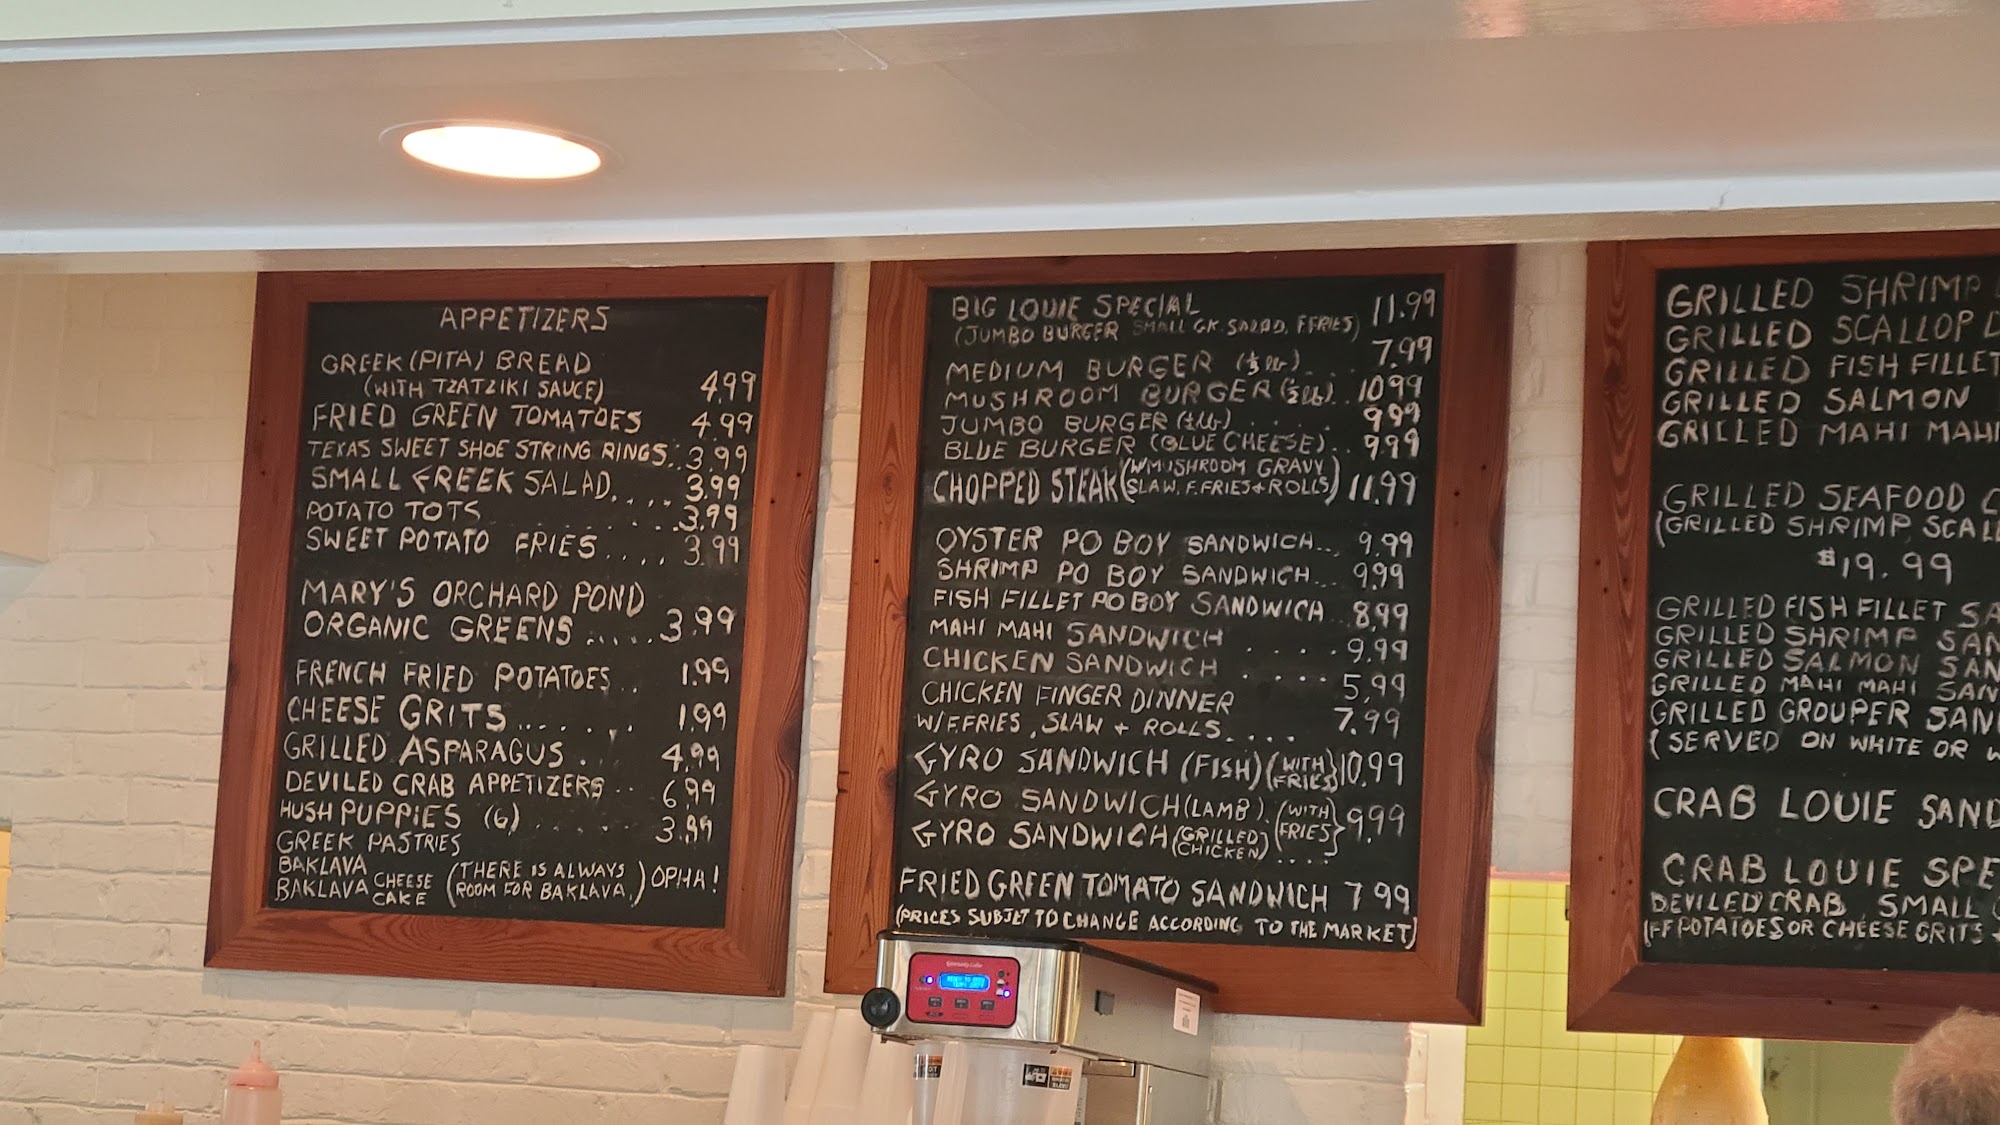 APPETIZERS
GREEK (PITA) BREAD
(WITH TZATZIKI SAUCE) 4.99
FRIED GREEN TOMATOES 4.99
TEXAS SWEET SHOE STRING RINGS.. 3.99
SMALL GREEK SALAD..... 3.99
POTATO TOTS ....... 3.99
SWEET POTATO FRIES.... 3.99
MARY'S ORCHARD POND
ORGANIC GREENS ..... 3.99
FRENCH FRIED POTATOES.. 1.99
CHEESE GRITS....... 1.99
GRILLED ASPARAGUS.. 4.99
DEVILED CRAB APPETIZERS.. 6.99
HUSH PUPPIES (6) ..... 3.99
GREEK PASTRIES
BAKLAVA
BAKLAVA CHEESE CAKE
(THERE IS ALWAYS
ROOM FOR BAKLAVA,) OPHA!
BIG LOUIE SPECIAL 11.99
(JUMBO BURGER SMALL GK. SALAD, F.FRIES)
MEDIUM BURGER (⅓ lb)... 7.99
MUSHROOM BURGER (½ lb).. 10.99
JUMBO BURGER (½ lb) ..... 9.99
BLUE BURGER (BLUE CHEESE).. 9.99
CHOPPED STEAK (W/MUSHROOM GRAVY
SLAW, F.FRIES + ROLLS) 11.99
OYSTER PO BOY SANDWICH... 9.99
SHRIMP PO BOY SANDWICH... 9.99
FISH FILLET PO BOY SANDWICH.. 8.99
MAHI MAHI SANDWICH .... 9.99
CHICKEN SANDWICH ..... 5.99
CHICKEN FINGER DINNER
W/F.FRIES, SLAW + ROLLS..... 7.99
GYRO SANDWICH (FISH) (WITH FRIES) 10.99
GYRO SANDWICH (LAMB). (WITH FRIES} 9.99
GYRO SANDWICH (GRILLED CHICKEN) ....
FRIED GREEN TOMATO SANDWICH 7.99
(PRICES SUBJET TO CHANGE ACCORDING TO THE MARKET)
GRILLED SHRIMP
GRILLED SCALLOP
GRILLED FISH FILLET
GRILLED SALMON
GRILLED MAHI MAHI
GRILLED SEAFOOD
(GRILLED SHRIMP, SCALL
$19.99
GRILLED FISH FILLET SA
GRILLED SHRIMP SAN
GRILLED SALMON SAN
GRILLED MAHI MAHI SAN
GRILLED GROUPER SAN
(SERVED ON WHITE OR W
CRAB LOUIE SAND
CRAB LOUIE SPE
DEVILED CRAB, SMALL
(FF POTATOES OR CHEESE GRITS +